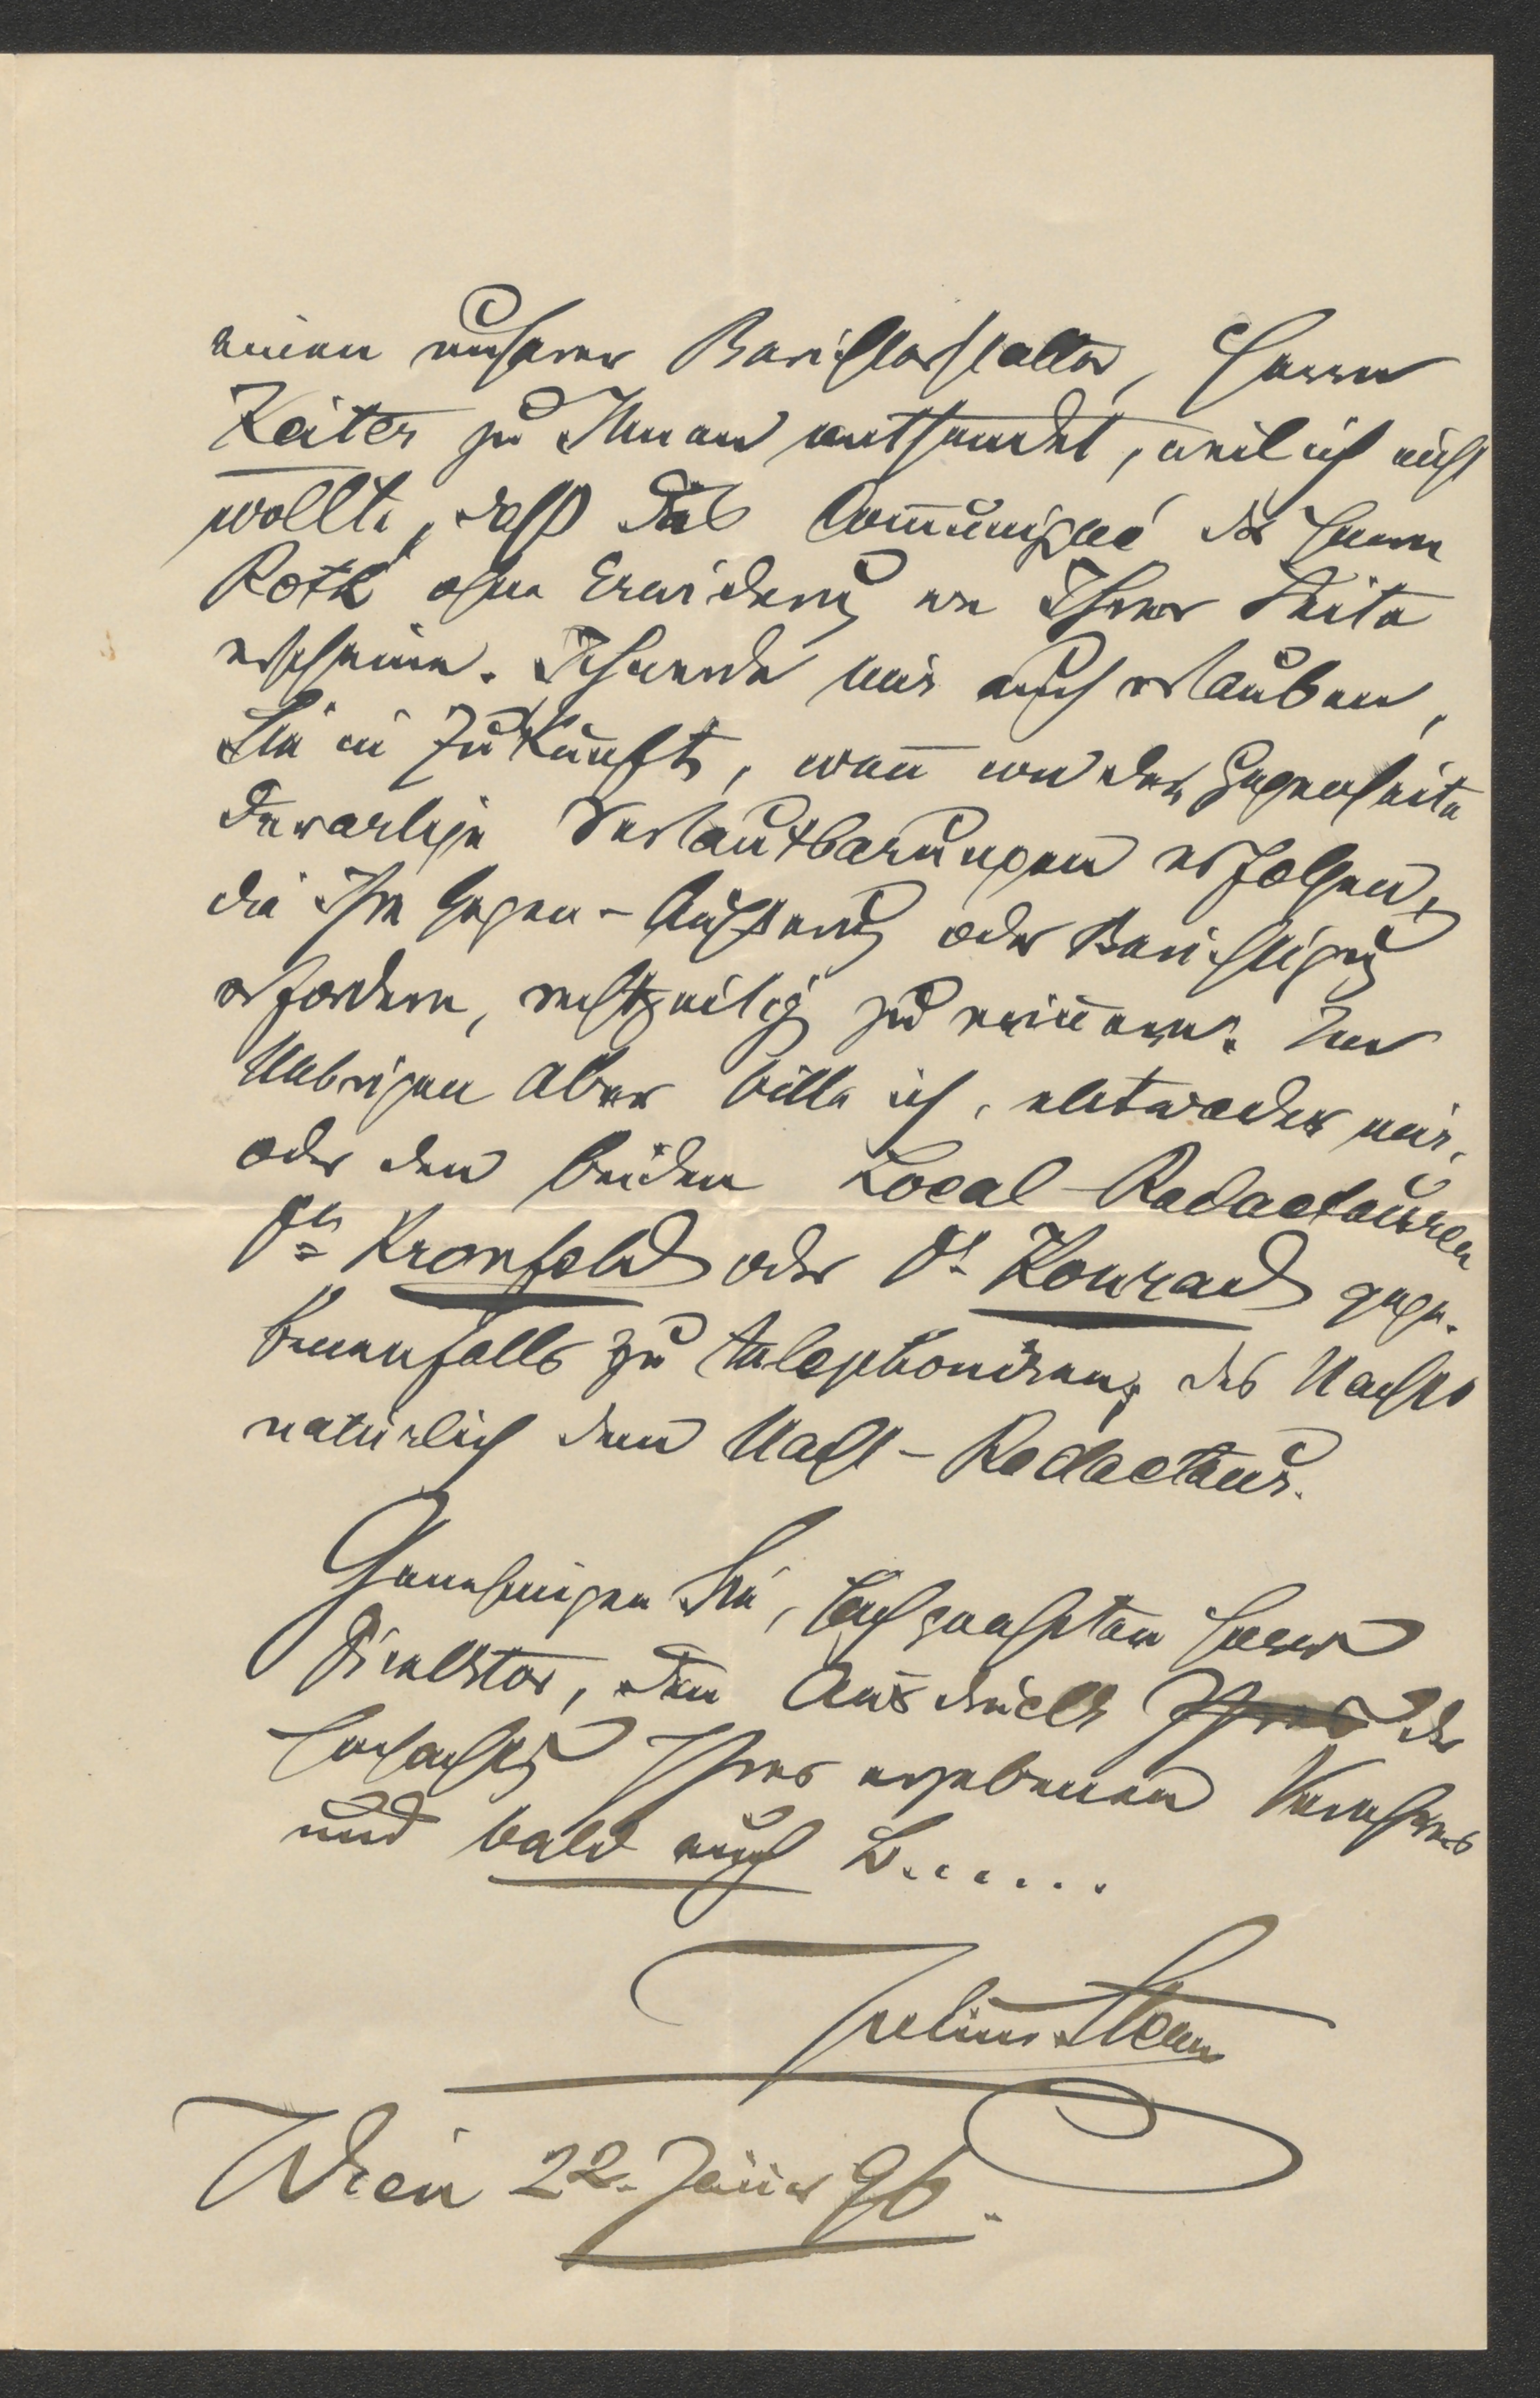 einen unserer Berichterstatter, Herrn
Keiter zu Ihnen entsendet, weil ich nicht
wollte, daß das Communiqué des Herrn
Roth ohne Erwiderung von Ihrer Seite
erscheine. Ich werde mir auch erlauben,
Sie in Zukunft, wen̄ von der Gegenseite
derartige Verlautbarungen erfolgen,
die Ihre Gegen-Äußerung oder Berichtigung
erfordern, rechtzeitig zu erin̄ern. Im
Uebrigen aber bitte ich, entweder mir,
oder den beiden Local-Redacteuren
Dr Kronfeld oder Dr Konrad gege-
benenfalls zu telephoniren, des Nachts
natürlich dem Nacht-Redacteur.
Genehmigen Sie, hochgeehrter Herr
Direktor, den Ausdruck Ihres der
Hochachtung Ihres ergebenen Verehrers
und bald auch L......
Julius Stern
Wien 22. Jän̄er 96.